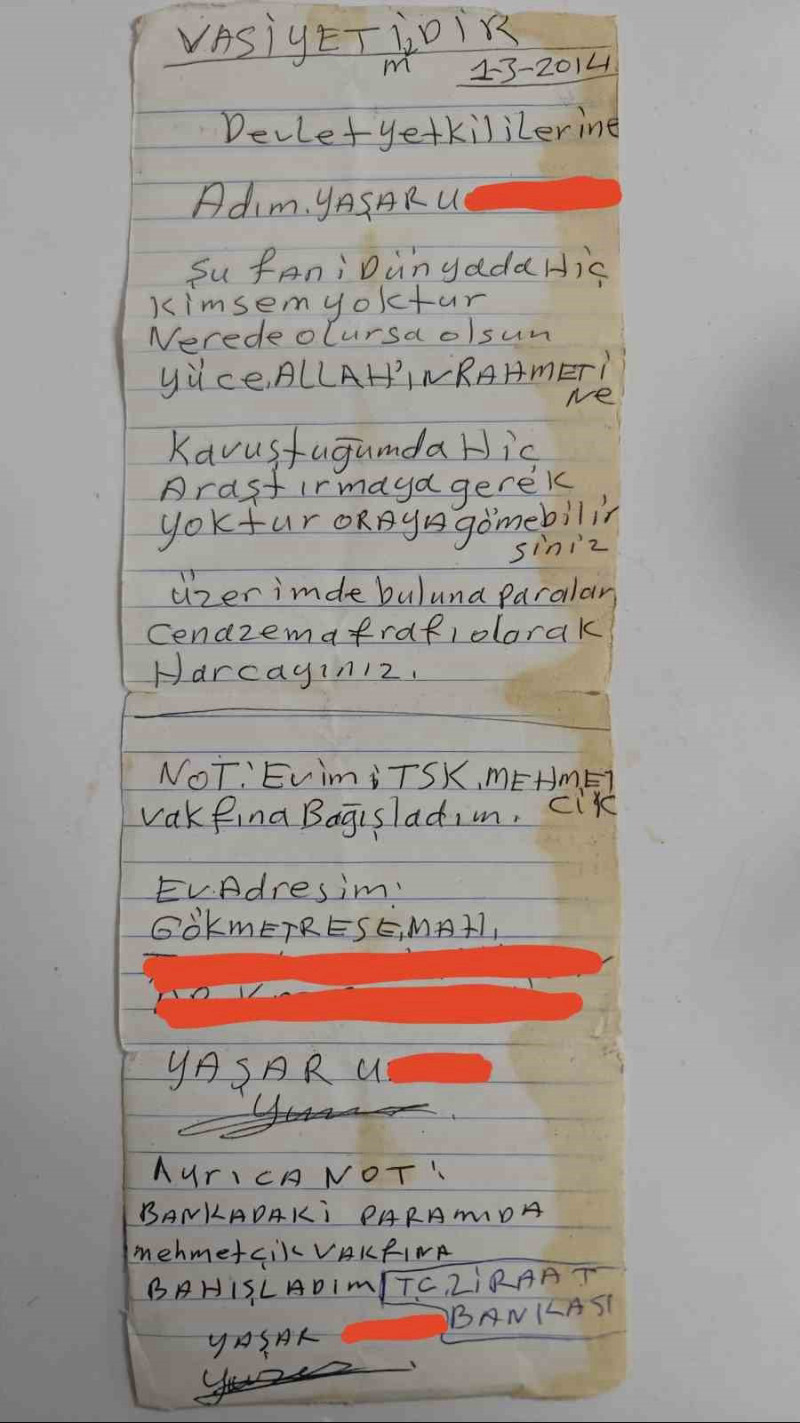 VASİYETİMDİR
1-3-2014
Devlet yetkililerine
Adım. YAŞAR U
Şu fAni Dünyada Hiç
kimsem yoktur
Nerede olursa olsun
yüce, ALLAH'IN RAHMETİ
Ne
Kavuştuğumda Hiç
Araştırmaya gerek
yoktur ORAYA gömebilir
siniz
üzerimde buluna paralar
Cenazemafrafı olarak
Harcayınız.
NOT: Evimi TSK, MEHMET
CİK
vakfına Bağışladım.
Ev. Adresim:
GÖKMETRESE, MAH,
YAŞAR U
AyrıCA NOT:
BANKADAKİ PARAMIDA
mehmetçik VAKFINA
BAHIŞLADIM T.C. ZİRAAT
BANKASI
YAŞAR